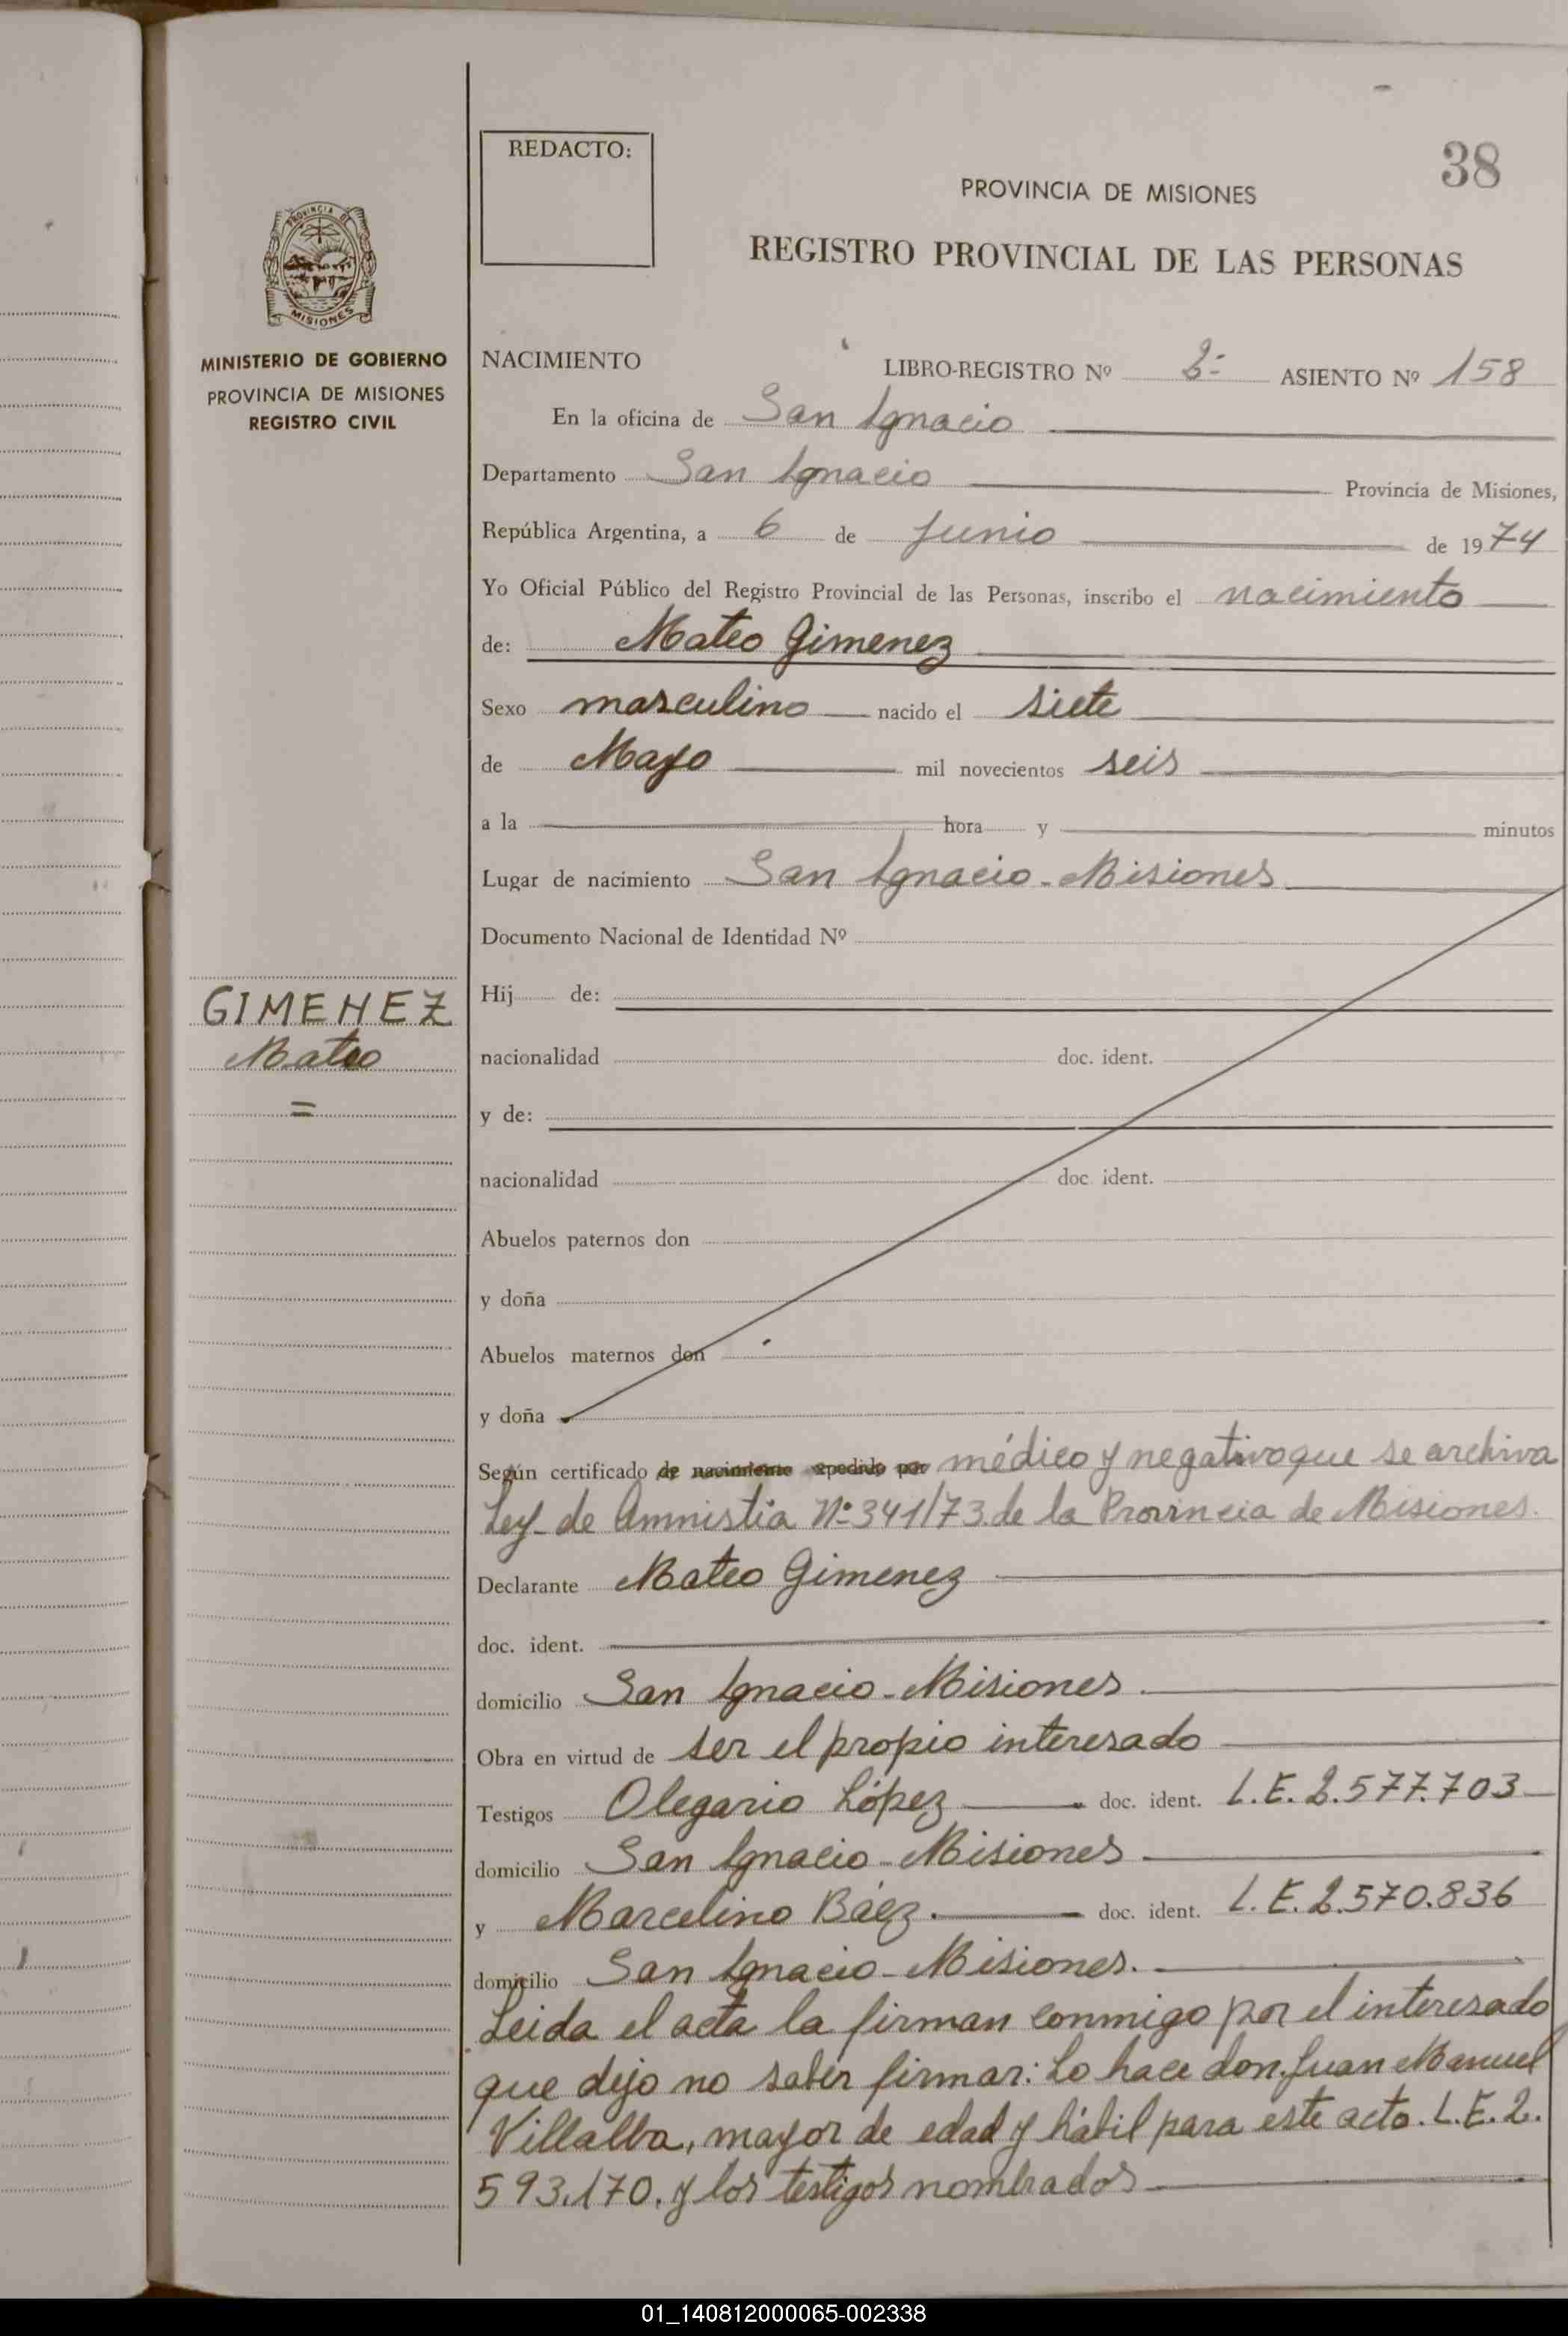 38
REDACTO:
PROVINCIA DE MISIONES
REGISTRO PROVINCIAL DE LAS PERSONAS
PROVINCIA DE
MISIONES
MINISTERIO DE GOBIERNO
PROVINCIA DE MISIONES
REGISTRO CIVIL
NACIMIENTO LIBRO-REGISTRO Nº 2- ASIENTO Nº 158
En la oficina de San Ignacio
Departamento San Ignacio Provincia de Misiones,
República Argentina, a 6 de Junio de 1974
Yo Oficial Público del Registro Provincial de las Personas, inscribo el nacimiento
de: Mateo Gimenez
Sexo masculino nacido el siete
de Mayo mil novecientos seis
a la hora y minutos
Lugar de nacimiento San Ignacio-Misiones
Documento Nacional de Identidad Nº
GIMENEZ
Mateo
=
Hij de:
nacionalidad doc. ident.
y de:
nacionalidad doc ident.
Abuelos paternos don
y doña
Abuelos maternos don
y doña
Según certificado de nacimiento expedido por médico y negativo que se archiva
Ley de Amnistia Nº 341/73 de la Provincia de Misiones.
Declarante Mateo Gimenez
doc. ident.
domicilio San Ignacio-Misiones.
Obra en virtud de ser el propio interesado
Testigos Olegario López doc. ident. L.E. 2.577.703
domicilio San Ignacio-Misiones
y Marcelino Báez. doc. ident. L.E. 2.570.836
domicilio San Ignacio-Misiones.
Leida el acta la firman conmigo por el interesado
que dijo no saber firmar: Lo hace don Juan Manuel
Villalba, mayor de edad y hábil para este acto. L.E. 2.
593.170. y los testigos nombrados
01_140812000065-002338